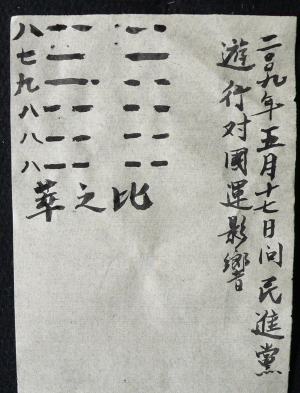 二〇〇九年五月十七日问民進黨
遊行对國運影響
八
七
九
八
八
八
萃之比